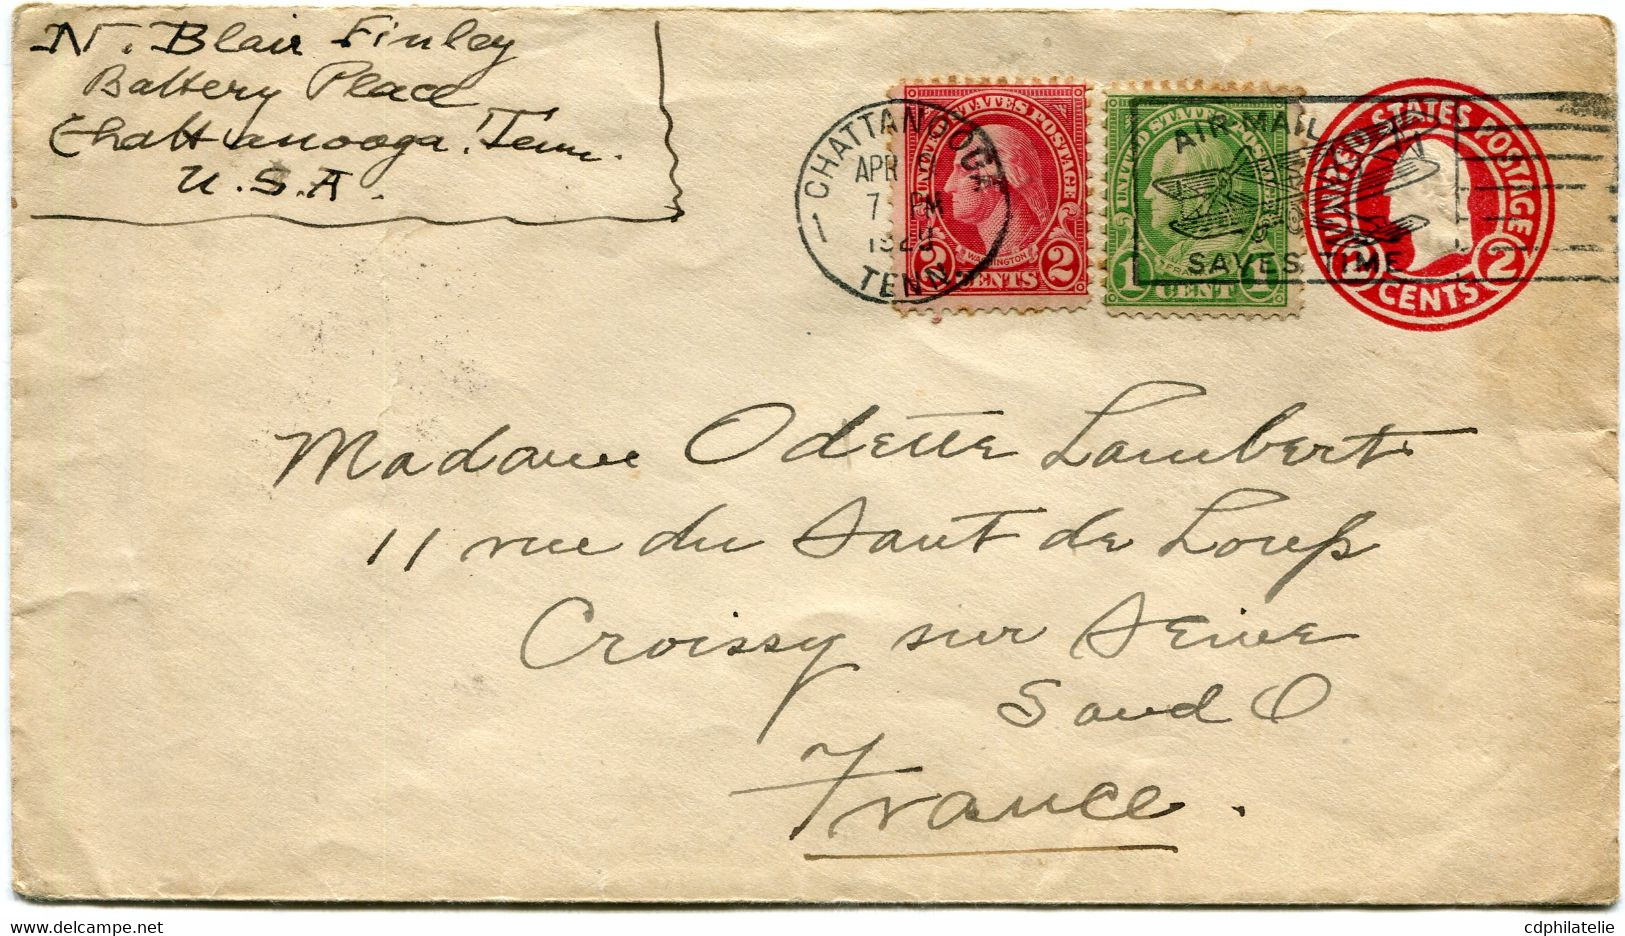 N. Blair Finley
Battery Place
Chattanooga, Tenn.
U.S.A.
CHATTANOOGA
APR
7 PM
1929
TENN.
UNITED STATES POSTAGE
WASHINGTON
2 CENTS 2
UNITED STATES POSTAGE
FRANKLIN
1 CENT 1
AIR MAIL
SAVES TIME
UNITED STATES POSTAGE
2 CENTS 2
Madame Odette Lambert
11 rue du Saut de Loup
Croissy sur Seine
S and O
France.
delcampe.net
cdphilatelie